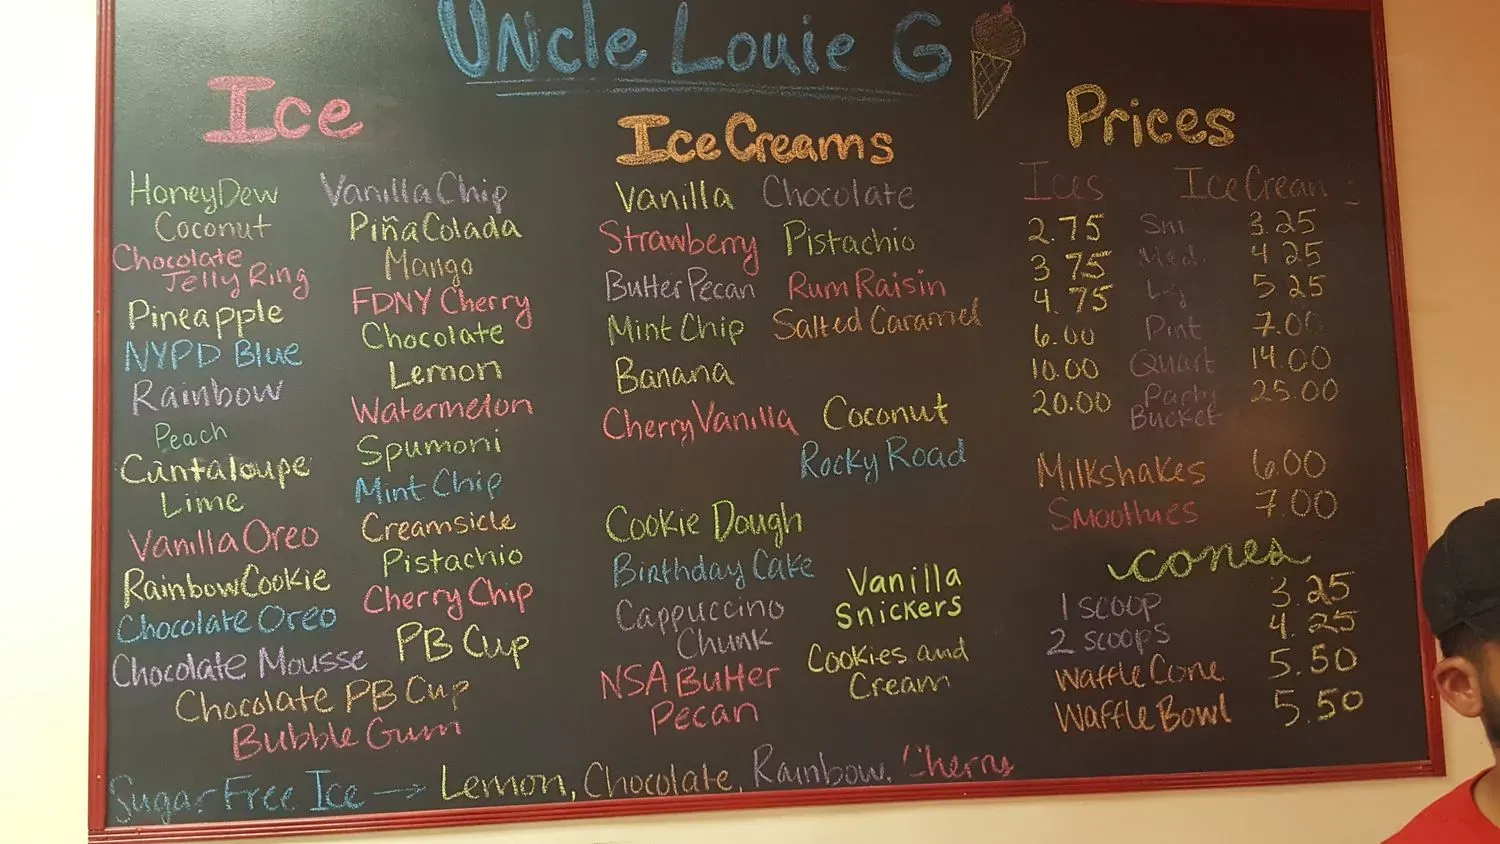 Uncle Louie G
Ice
HoneyDew
Coconut
Chocolate
Jelly Ring
Pineapple
NYPD Blue
Rainbow
Peach
Cantaloupe
Lime
Vanilla Oreo
Rainbow Cookie
Chocolate Oreo
Chocolate Mousse
Chocolate PB Cup
Bubble Gum
Vanilla Chip
Piña Colada
Mango
FDNY Cherry
Chocolate
Lemon
Watermelon
Spumoni
Mint Chip
Creamsicle
Pistachio
Cherry Chip
PB Cup
Ice Creams
Vanilla Chocolate
Strawberry Pistachio
Butter Pecan Rum Raisin
Mint Chip Salted Caramel
Banana
Cherry Vanilla Coconut
Rocky Road
Cookie Dough
Birthday Cake
Cappuccino
Chunk
NSA Butter
Pecan
Vanilla
Snickers
Cookies and
Cream
Prices
Ices Ice Creams
2.75 Sm 3.25
3 75 Med. 4 25
4.75 Lg 5.25
6.00 Pint 7.00
10.00 Quart 14.00
20.00 Party 25.00
Bucket
Milkshakes 6.00
Smoothies 7.00
Cones
1 scoop 3.25
2 scoops 4.25
Waffle Cone 5.50
Waffle Bowl 5.50
Sugar Free Ice → Lemon, Chocolate, Rainbow, Cherry